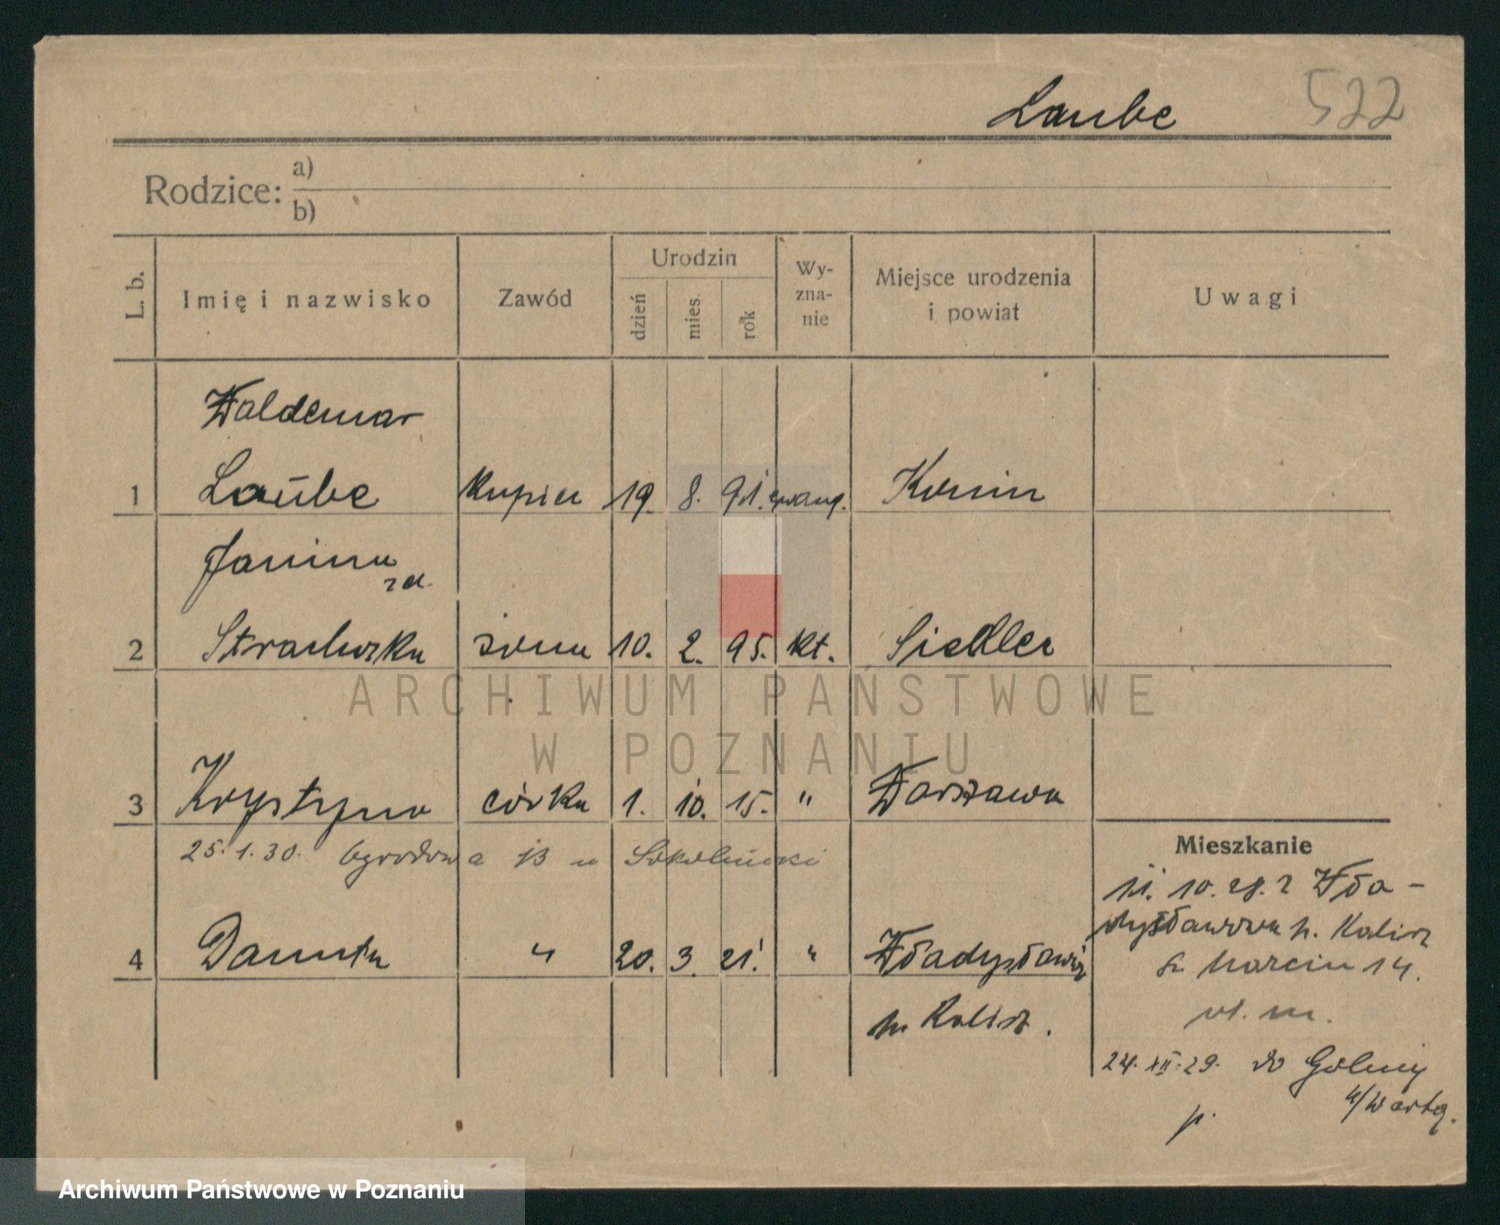 Laube 522
Rodzice: a)
b)
L. b.
Imię i nazwisko
Zawód
Urodzin
dzień
mies.
rok
Wy-
zna-
nie
Miejsce urodzenia
i powiat
Uwagi
Waldemar
1 Laube kupiec 19. 8. 91. ewang. Konin
Janina
zd.
2 Strachurska żona 10. 2. 95. kt. Siedlce
ARCHIWUM PAŃSTWOWE
W POZNANIU
3 Krystyna córka 1. 10. 15. " Warszawa
25.1.30. Ogrodowa 13 u Sokolnicki
4 Danuta " 20. 3. 21. " Władysławów
p. Kalisz.
Mieszkanie
10.28. z Wła-
dysławowa p. Kalisz
św. Marcin 14.
w. m.
24.XII.29. do Goliny
n/Wartą.
p.
Archiwum Państwowe w Poznaniu